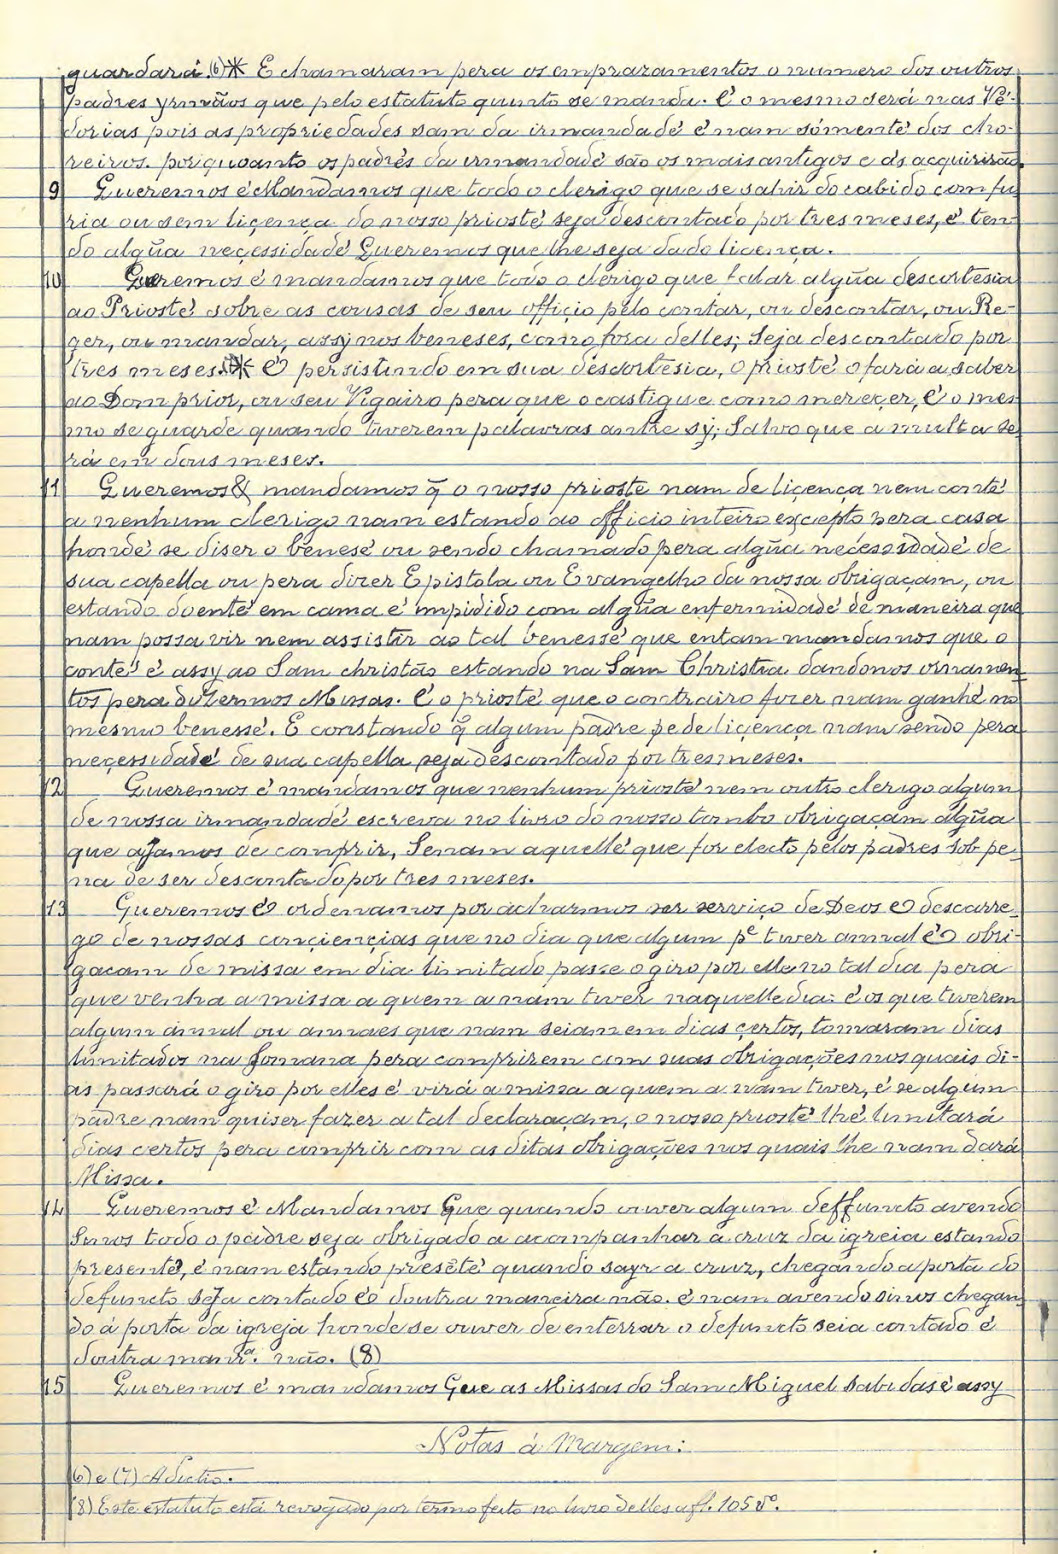 guardará.(6)* E chamaram pera os emprazamentos o numero dos outros
padres yrmãos que pelo estatuto quinto se manda. E o mesmo será nas Vé-
dorias pois as propriedades sam da irmandade é nam sómente dos cho-
reiros. porquoanto os padrés da irmandadé são os mais antigos e ás acquirirão.
9 Queremos é Mandamos que todo o clerigo que se sahir do cabido com fu
ria ou sem liçença do nosso priosté seja descontado por tres meses, é ten-
do algũa neçessidadé Queremos que lhe seja dado liçença.
10 Queremos é mandamos que todo o clerigo que falar algũa descortesia
ao Priosté sobre as cousas de seu offiçio pélo contar, ou descontar, ou Re-
ger, ou mandar, assy nos beneses, como fora delles; Seja descontado por
tres meses.* É persistindo em sua descortesia, o priosté o fará a saber
ao Dom prior, ou seu Vigairo pera que o castigue como mereçer, É o mes-
mo se guarde quando tiverem palavras antre sÿ; Salvo que a multa se-
rá em dous meses.
11 Queremos & mandamos q̃ o nosso prioste nam de liçença nem conté
a nenhum clerigo nam estando ao officio inteiro excepto pera casa
hondé se diser o benesé ou sendo chamado pera algũa necéssidadé de
sua capella ou pera dizer Epistola ou Evangelho da nossa obrigaçam, ou
estando doenté em cama é impidido com algũa enfermidadé dé maneira que
nam possa vir nem assistir ao tal benessé que entam mandamos que o
conté é assy ao Sam christão estando na Sam Christia dandonos ornamen-
tos pera dizermos Missas. É o priosté que o contrairo fizer nam ganhé no
mesmo benessé. E constando q̃ algum padre pede liçença nam sendo pera
neçessidadé de sua capella seja descontado por tres meses.
12 Queremos é mandamos que nenhum priosté nem outro clerigo algum
de nossa irmandadé escreva no livro do nosso tombo obrigaçam algũa
que ajamos de comprir, Senam aquellé que for electo pélos padres sob pe-
na de ser descontado por tres meses.
13 Queremos É ordenamos por acharmos ser serviço de Deos É descarre-
go de nossas conçiençias que no dia que algum pᵉ tiver annal É obri-
gacam de missa em dia limitado passe o giro por elle no tal dia pera
que venha a missa a quem a nam tiver naquelle dia: é os que tiverem
algum annal ou annaes que nam seiam em dias çertos, tomaram dias
limitados na somana pera comprirem com suas obrigações nos quais di-
as passará o giro por elles é virá a missa a quem a nam tiver, é se algum
padre nam quiser fazer a tal declaraçam, o nosso priosté lhé limitará
dias certos pera comprir com as ditas obrigações nos quais lhe nam dará
Missa.
14 Queremos é Mandamos Que quando ouver algum deffuncto avendo
Sinos todo o padre seja obrigado a acompanhar a cruz da igreia estando
presenté, é nam estando presẽté quando sayr a cruz, chegando a porta do
defuncto seja contado É doutra maneira não. é nam avendo sinos chegan-
do á porta da igreja honde se ouver de enterrar o defuncto seia contado é
doutra manrᵃ. não. (8)
15 Queremos é mandamos Que as Missas do Sam Miguel sabidas é assy
Notas á Margem:
(6) e (7) Adicto.
(8) Este estatuto está revogado por têrmo feito no livro delles a fl. 105 vº.